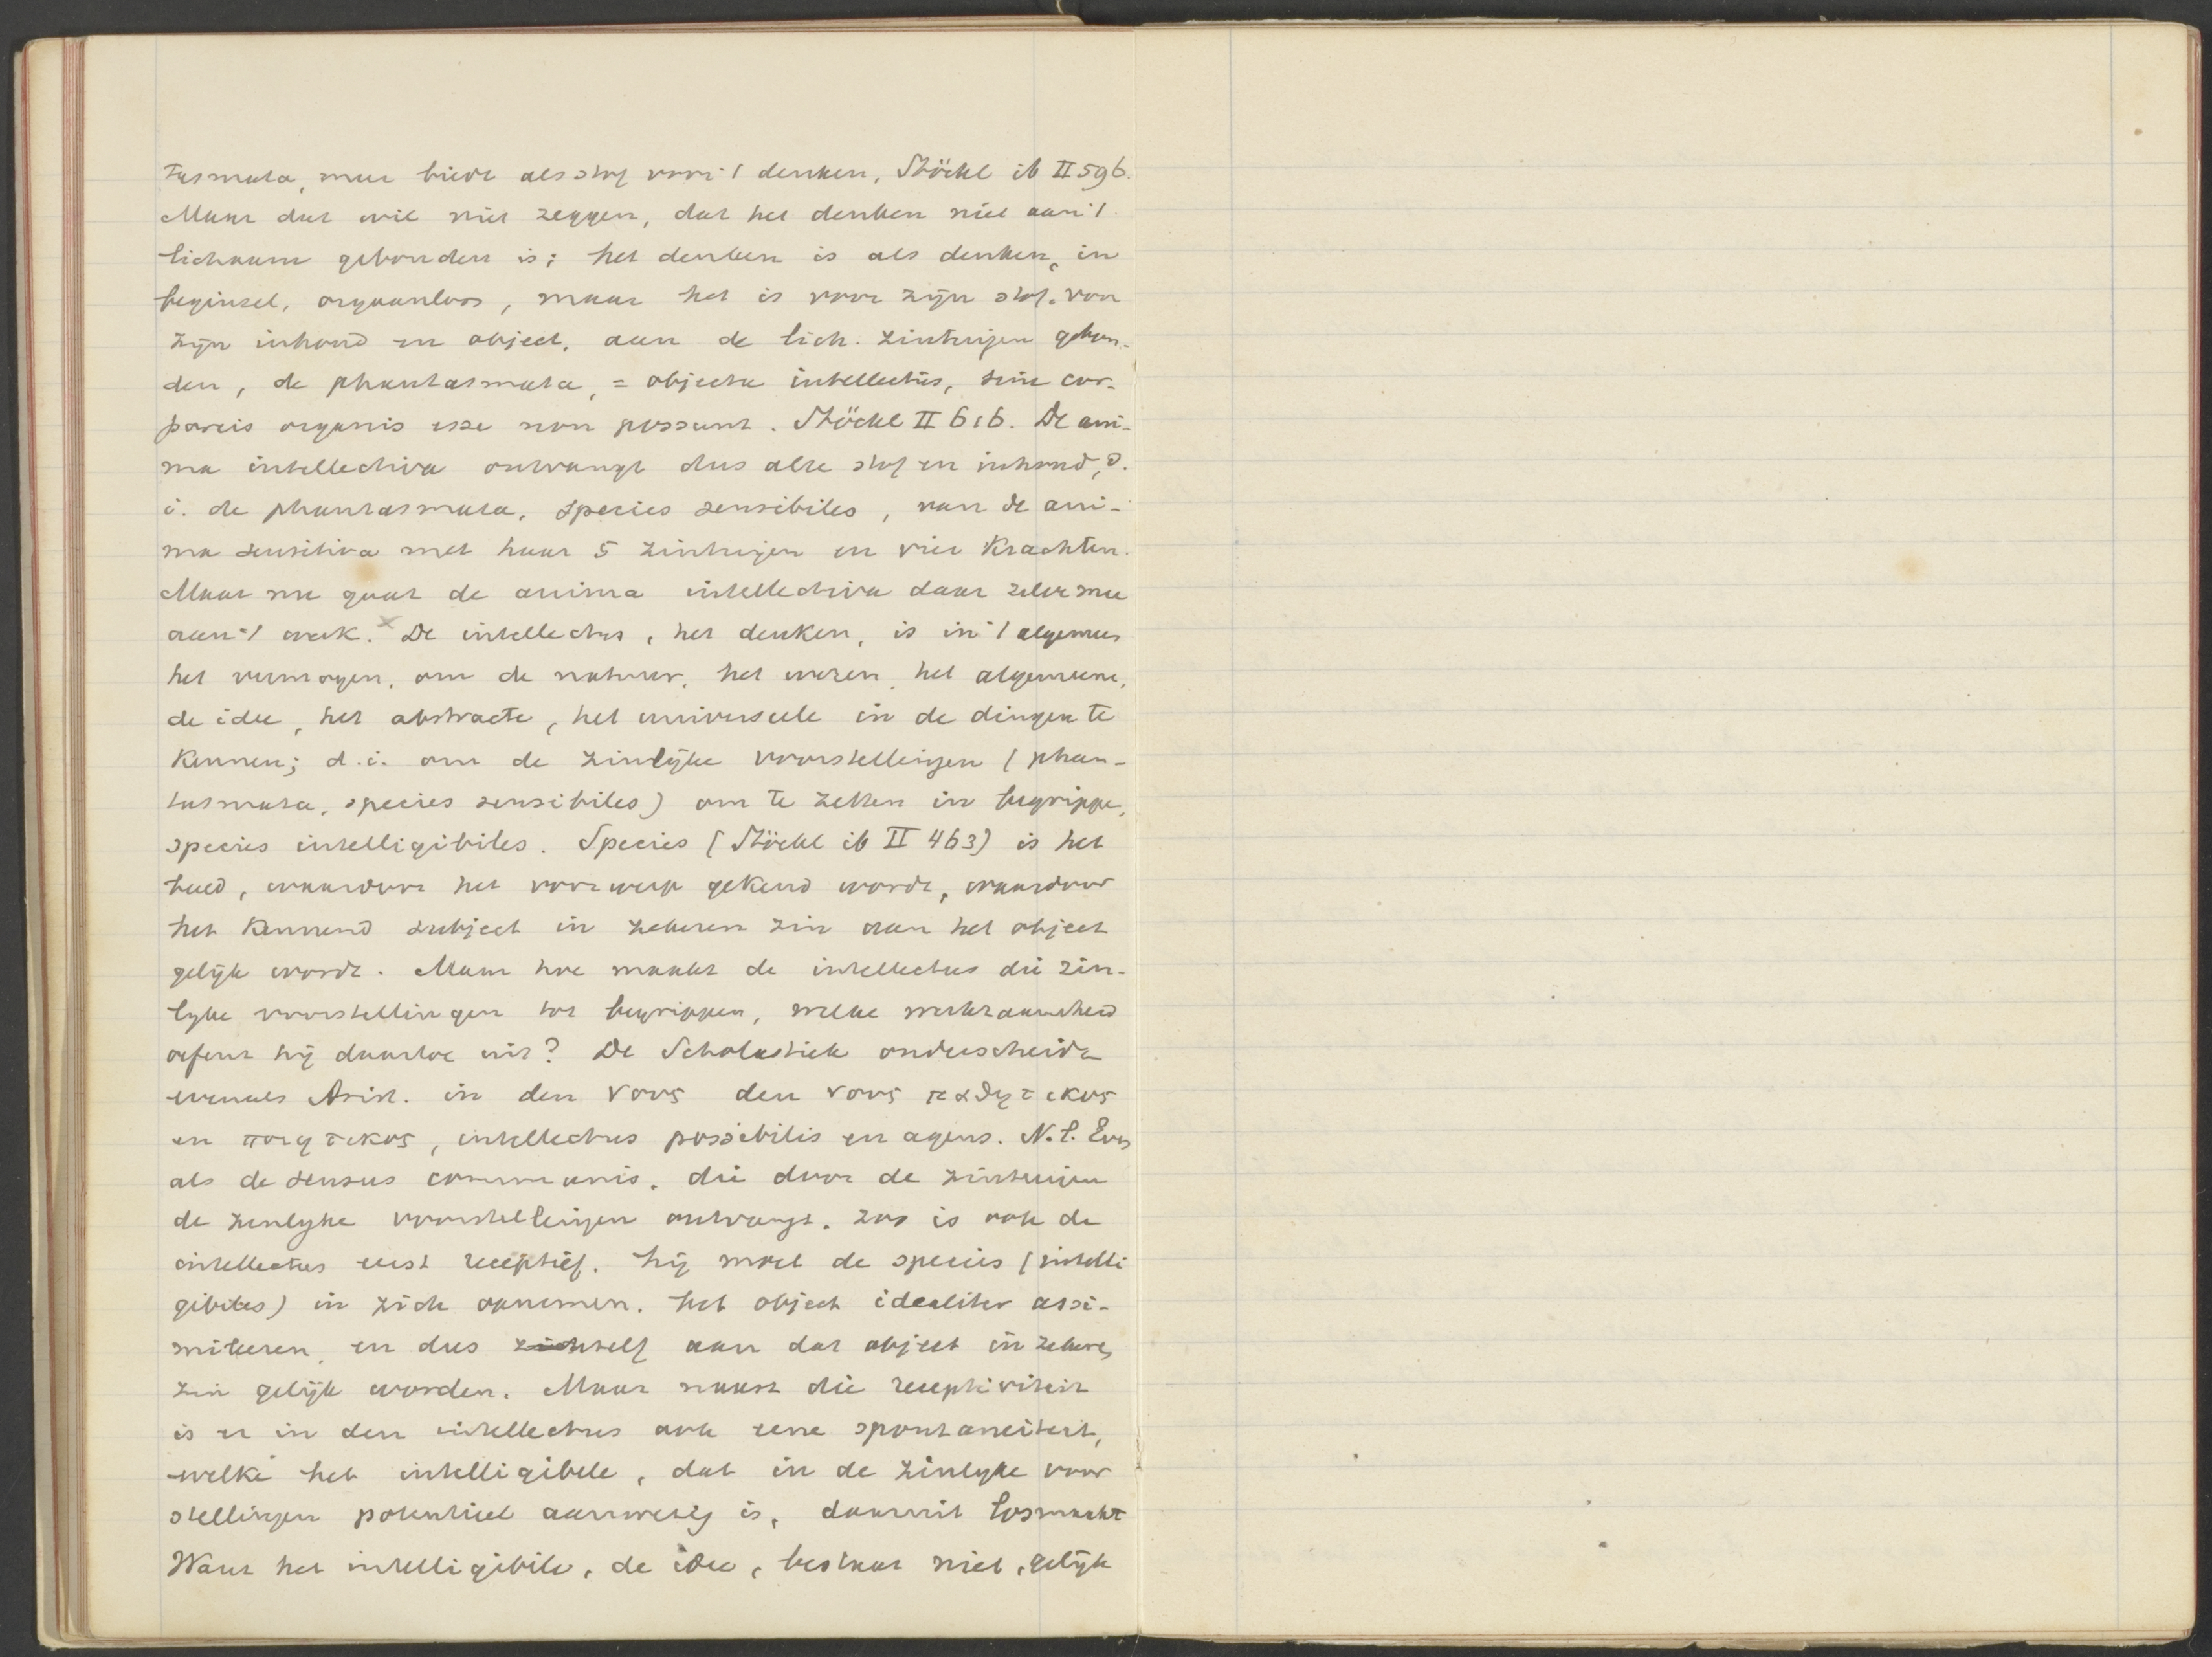 tasmata, meer biedt als stof voor 't denken, Stöckl ib II 596.
Maar dat wil niet zeggen, dat het denken niet aan 't
lichaam gebonden is; het denken is als denken, in
beginsel, orgaanloos, maar het is voor zijn stof, voor
zijn inhoud en object, aan de lich. zintuigen gebon-
den, de phantasmata, = objecta intellectus, sine cor-
poreis organis esse non possunt. Stöckl II 616. De ani-
ma intellectiva ontvangt dus alle stof en inhoud, d.
i. de phantasmata, species sensibiles, van de ani-
ma sensitiva met haar 5 zintuigen en vier Krachten.
Maar nu gaat de anima intellectiva daar zelve mee
aan 't werk. × De intellectus, het denken, is in 't algemeen
het vermogen, om de natuur, het wezen, het algemeene,
de idee, het abstracte, het universeele in de dingen te
Kennen; d.i. om de zinlijke voorstellingen (phan-
tasmata, species sensibiles) om te zetten in begrippen,
species intelligibiles. Species (Stöckl ib II 463) is het
beeld, waardoor het voorwerp gekend wordt, waardoor
het Kennend subject in zekeren zin aan het object
gelijk wordt. Maar hoe maakt de intellectus die zin-
lyke voorstellingen tot begrippen, welke werkzaamheid
oefent hij daartoe uit? De Scholastiek onderscheidt
evenals Arist. in den νους den νους παθητικος
en ποιητικος, intellectus possibilis en agens. N.l. Even
als de sensus communis, die door de zintuigen
de zinlyke voorstellingen ontvangt, zoo is ook de
intellectus eerst receptief. hij moet de species (intelli
gibiles) in zich opnemen, het object idealiter assi-
mileeren, en dus zichself aan dat object in zekeren
zin gelijk worden. Maar naast die receptiviteit
is er in den intellectus ook eene spontaneiteit,
welke het intelligibele, dat in de zinlyke voor
stellingen potentieel aanwezig is, daaruit losmaakt
Want het intelligibile, de idee, bestaat niet, gelijk